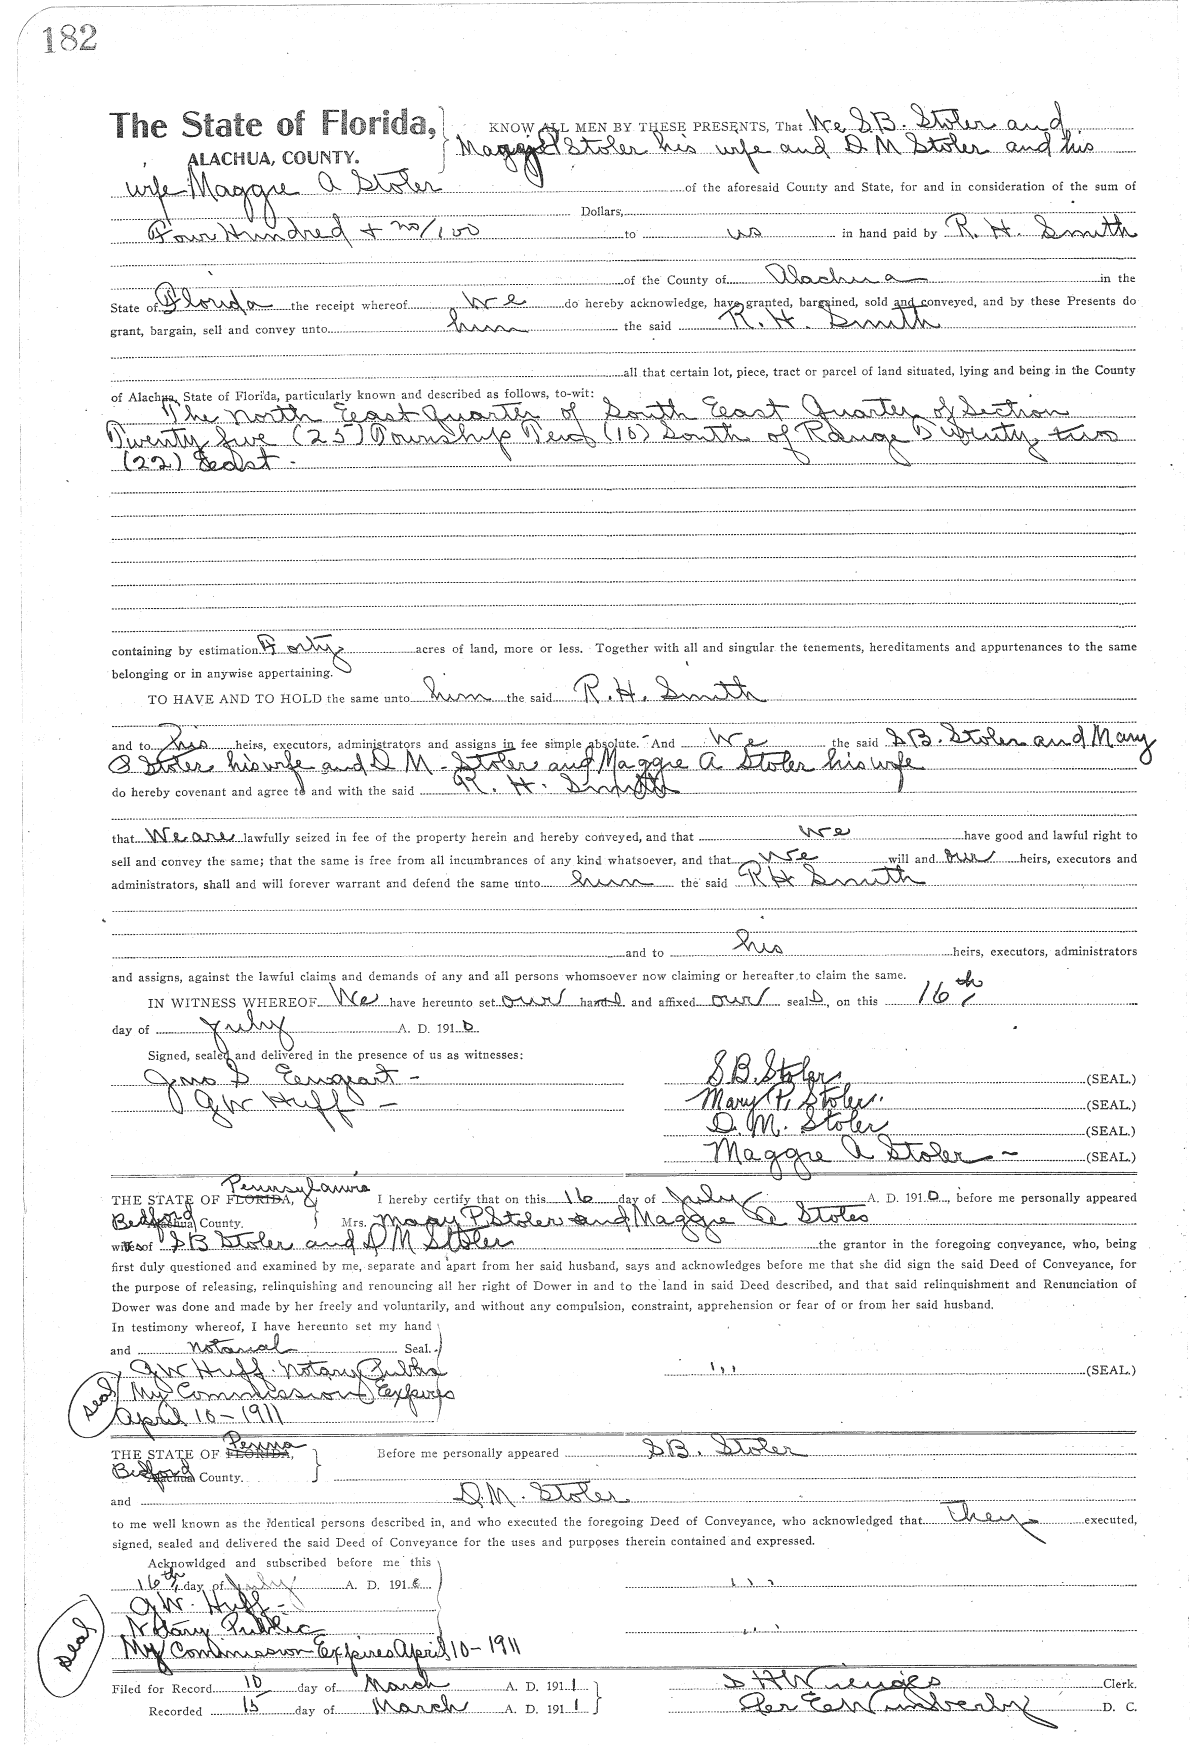 182
The State of Florida, KNOW ALL MEN BY THESE PRESENTS, That We S.B. Stoler and
ALACHUA, COUNTY. Stoler his wife and D M Stoler and his
wife Maggie A Stoler of the aforesaid County and State, for and in consideration of the sum of
Dollars,
Four Hundred + no/100 to us in hand paid by R. H. Smith
of the County of Alachua in the
State of Florida the receipt whereof we do hereby acknowledge, have granted, bargained, sold and conveyed, and by these Presents do
grant, bargain, sell and convey unto him the said R. H. Smith
all that certain lot, piece, tract or parcel of land situated, lying and being in the County
of Alachua, State of Florida, particularly known and described as follows, to-wit:
The North East Quarter of South East Quarter of Section
Twenty five (25) Township Ten (10) South of Range Twenty two
(22) East.
containing by estimation Forty acres of land, more or less. Together with all and singular the tenements, hereditaments and appurtenances to the same
belonging or in anywise appertaining.
TO HAVE AND TO HOLD the same unto him the said R. H. Smith
and to his heirs, executors, administrators and assigns in fee simple absolute. And We the said S B. Stoler and Mary
P Stoler his wife and D M. Stoler and Maggie A Stoler his wife
do hereby covenant and agree to and with the said R. H. Smith
that We are lawfully seized in fee of the property herein and hereby conveyed, and that we have good and lawful right to
sell and convey the same; that the same is free from all incumbrances of any kind whatsoever, and that we will and our heirs, executors and
administrators, shall and will forever warrant and defend the same unto him the said R H Smith
and to his heirs, executors, administrators
and assigns, against the lawful claims and demands of any and all persons whomsoever now claiming or hereafter to claim the same.
IN WITNESS WHEREOF We have hereunto set our hands and affixed our seals, on this 16th
day of July A. D. 1910
Signed, sealed and delivered in the presence of us as witnesses:
Jno S S.B. Stoler (SEAL.)
G W Huff Mary P. Stoler. (SEAL.)
D. M. Stoler (SEAL.)
Maggie A Stoler (SEAL.)
Pennsylvania
THE STATE OF FLORIDA, I hereby certify that on this 16 day of July A. D. 1910, before me personally appeared
Bedford Alachua County. Mrs. Mary P. Stoler and Maggie A Stoler
wives of S B Stoler and D M Stoler the grantor in the foregoing conveyance, who, being
first duly questioned and examined by me, separate and apart from her said husband, says and acknowledges before me that she did sign the said Deed of Conveyance, for
the purpose of releasing, relinquishing and renouncing all her right of Dower in and to the land in said Deed described, and that said relinquishment and Renunciation of
Dower was done and made by her freely and voluntarily, and without any compulsion, constraint, apprehension or fear of or from her said husband.
In testimony whereof, I have hereunto set my hand
and notarial Seal.
G W Huff. Notary Public (SEAL.)
My Commission Expires
Seal
April 10 - 1911
Penna
THE STATE OF FLORIDA, Before me personally appeared S B. Stoler
Bedford Alachua County.
and D. M. Stoler
to me well known as the identical persons described in, and who executed the foregoing Deed of Conveyance, who acknowledged that They executed,
signed, sealed and delivered the said Deed of Conveyance for the uses and purposes therein contained and expressed.
Acknowldged and subscribed before me this
16th day of July A. D. 1910
G W. Huff
Notary Public
Seal
My Commission Expires April 10 - 1911
Filed for Record 10 day of March A. D. 1911 S H Wienges Clerk.
Recorded 15 day of March A. D. 1911 Per E W Wimberly D. C.